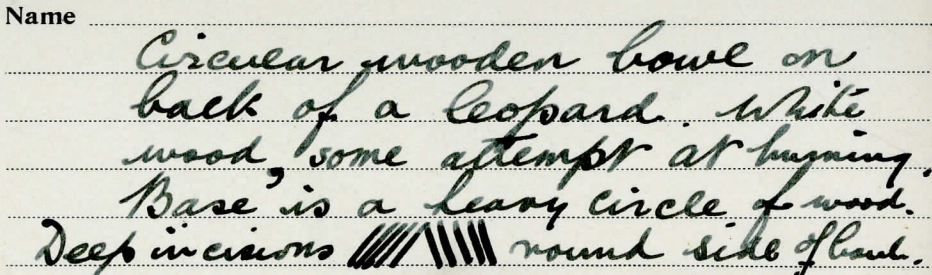 Name
Circular wooden bowl on
back of a leopard. White
wood, some attempt at burning.
Base is a heavy circle of wood.
Deep incisions round side of bowl.